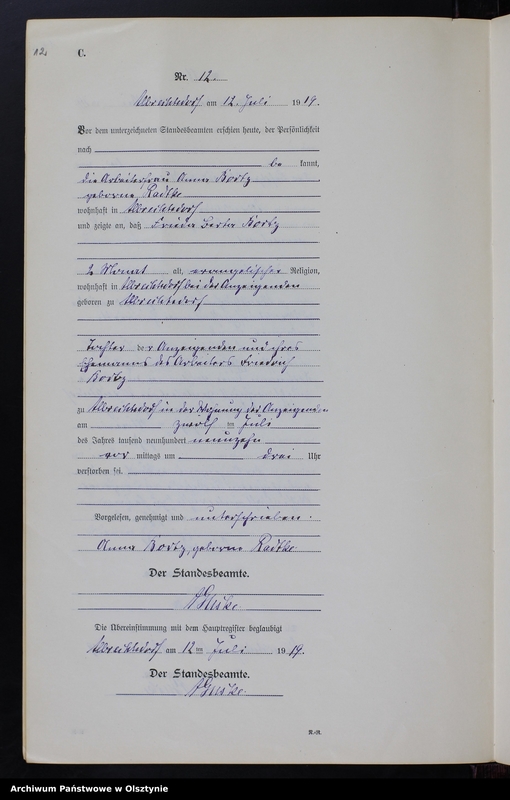 12.
C.
Nr. 12.
Albrechtsdorf am 12. Juli 1919.
Vor dem unterzeichneten Standesbeamten erschien heute, der Persönlichkeit
nach
be kannt,
die Arbeiterfrau Anna
geborene Radtke
wohnhaft in Albrechtsdorf
und zeigte an, daß Frieda Berta
2 Monat alt, evangelischer Religion,
wohnhaft in Albrechtsdorf bei der Anzeigenden
geboren zu Albrechtsdorf
Tochter der Anzeigenden und ihres
Ehemanns des Arbeiters Friedrich
zu Albrechtsdorf in der Wohnung der Anzeigenden
am zwölf im Juli
des Jahres tausend neunhundert neunzehn
vor mittags um drei Uhr
verstorben sei.
Vorgelesen, genehmigt und unterschrieben.
Anna geborene Radtke
Der Standesbeamte.
Die Übereinstimmung mit dem Hauptregister beglaubigt
Albrechtsdorf am 12ten Juli 1919.
Der Standesbeamte.
R.-R.
Archiwum Państwowe w Olsztynie